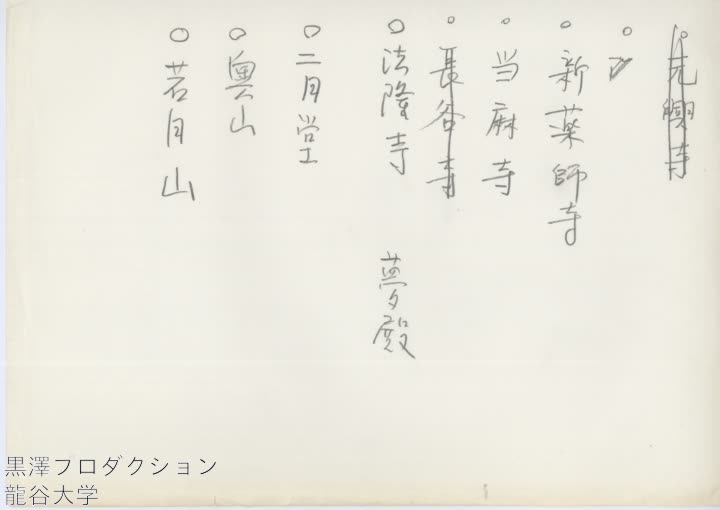 ○元興寺
○
○新薬師寺
○当麻寺
○長谷寺
○法隆寺　夢殿
○二月堂
○奥山
○若月山
黒澤プロダクション
龍谷大学